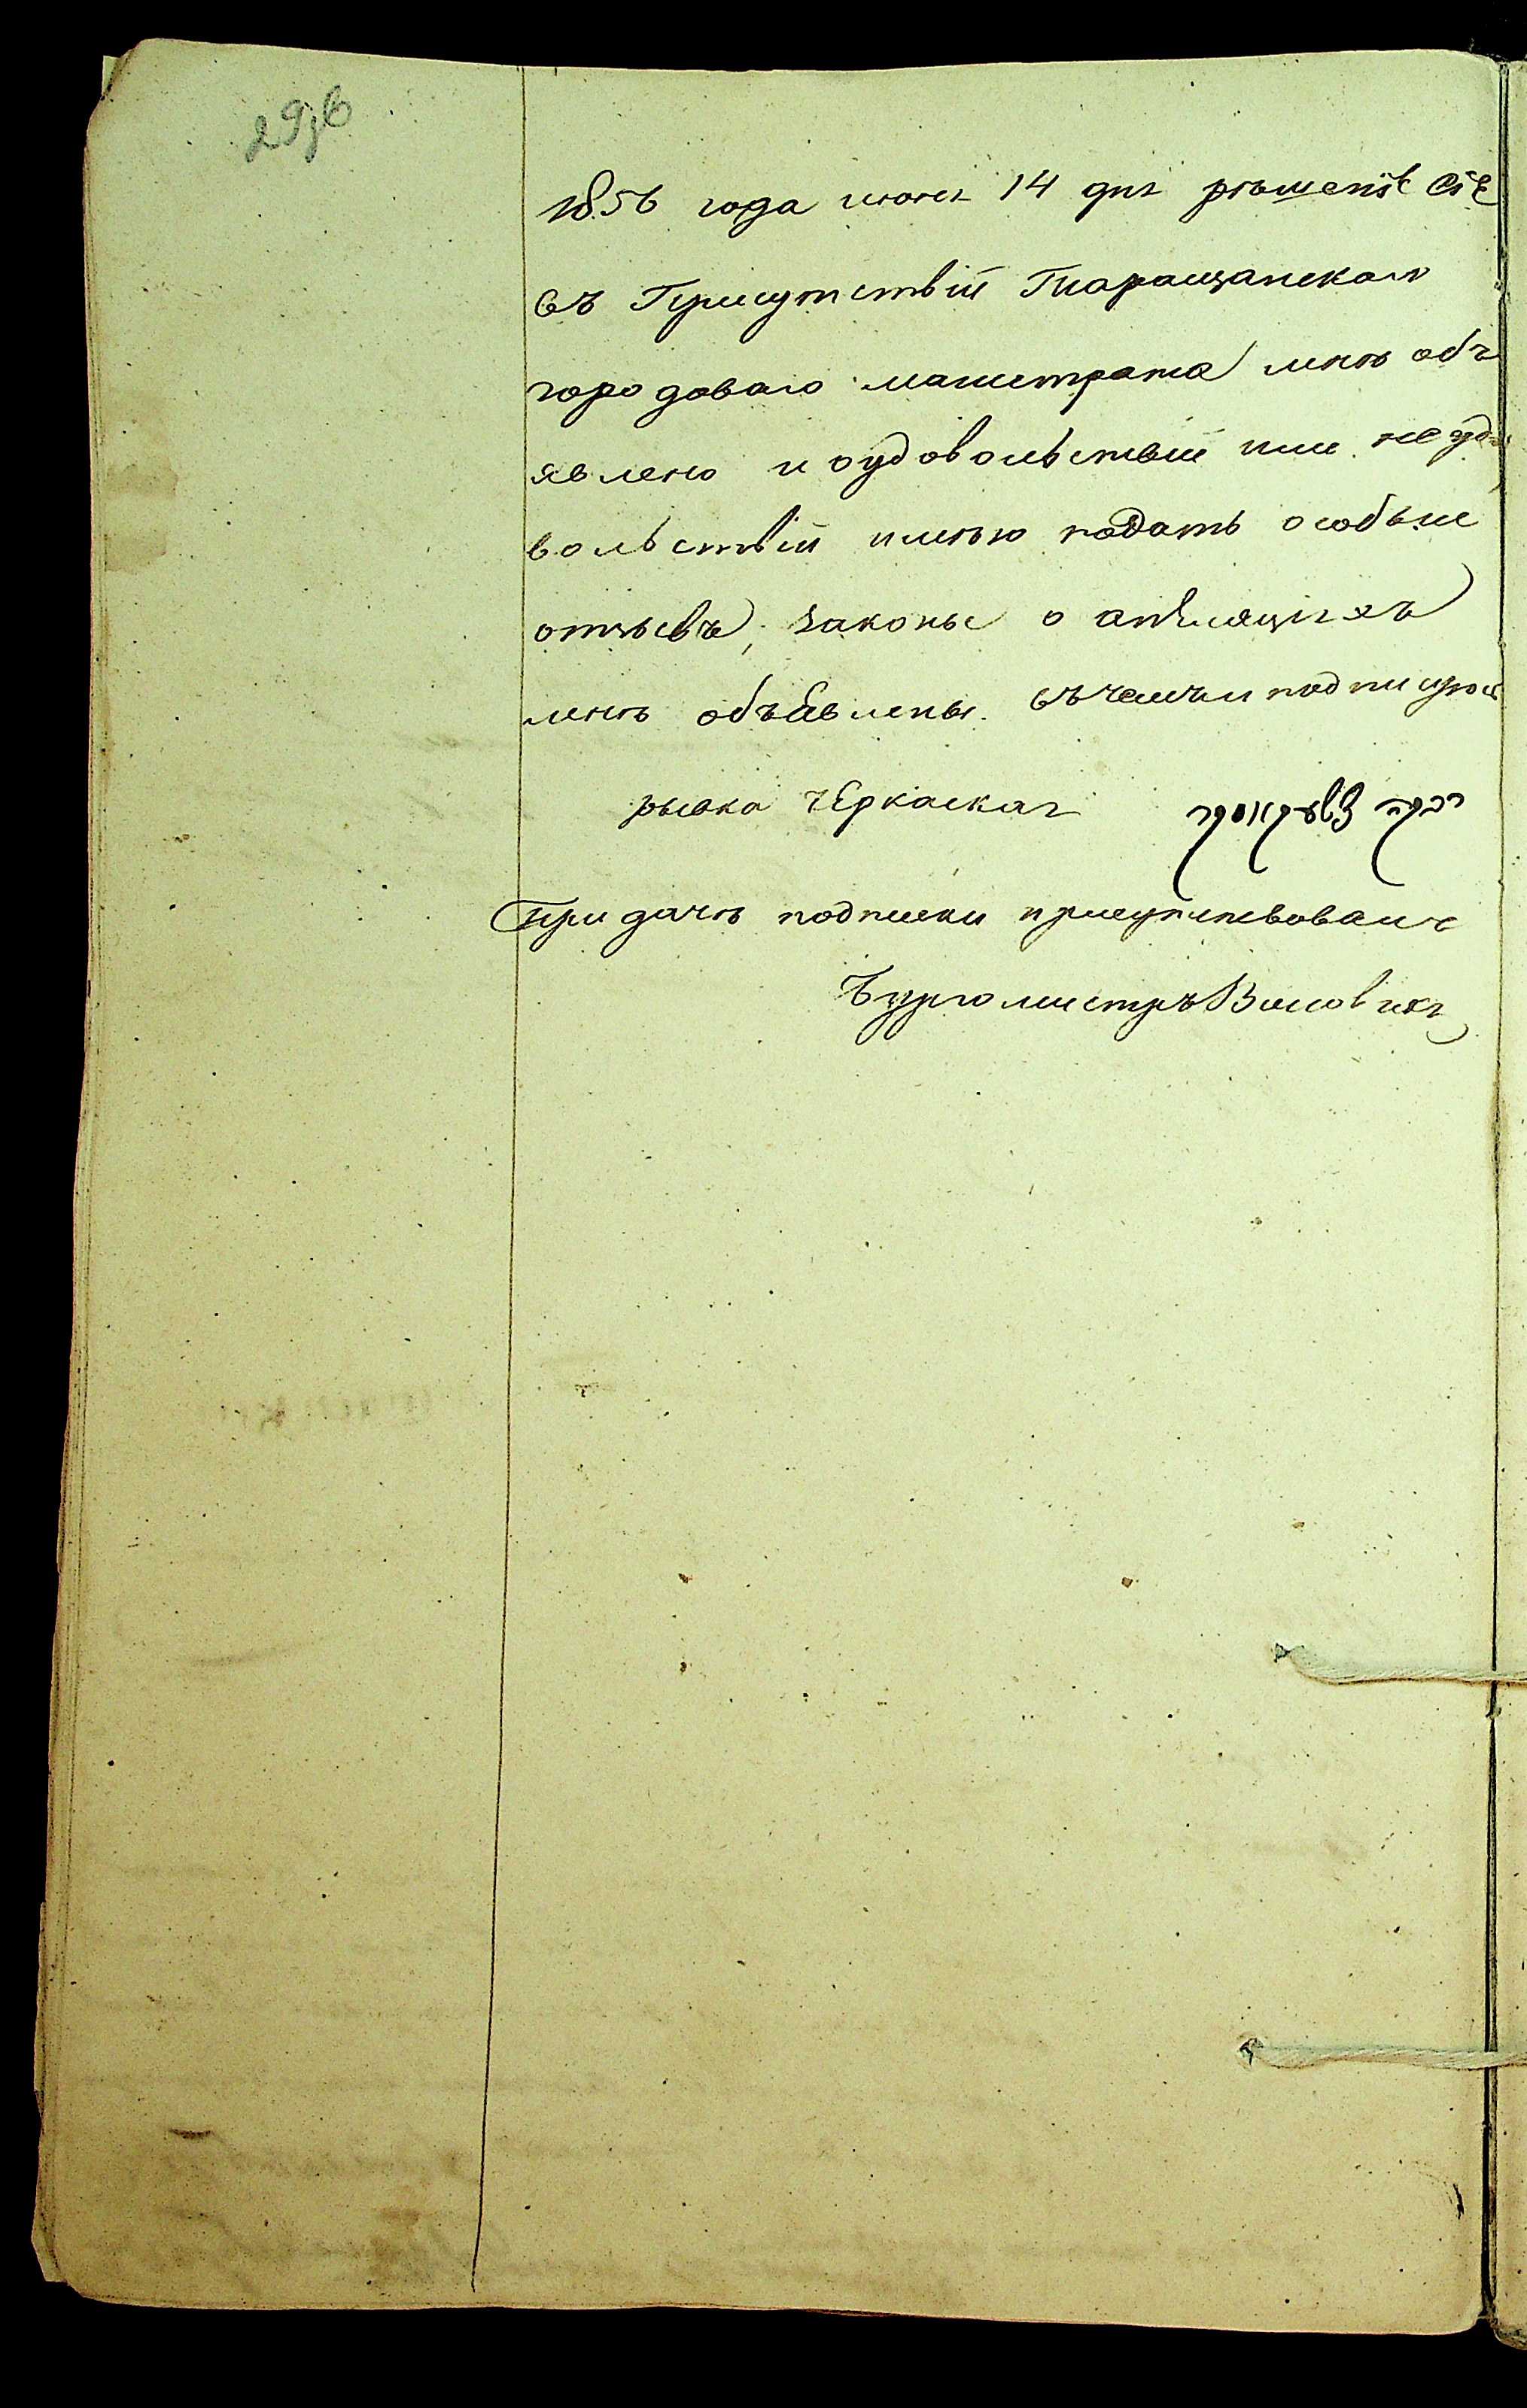 29об
1856 года июня 14 дня рѣшеніе сіе
въ Присутствіи Таращанскаго
городоваго магистрата мнѣ объ
явлено и оудовольствіи или неудо
вольствіи имѣю подать особые
отзывъ, законы о апѣляціяхъ
мнѣ объявлены. въ чемъ и подписуюсь
рывка чЕркаская רבקה
При дачѣ подписки присутствовалъ
Бургомистръ